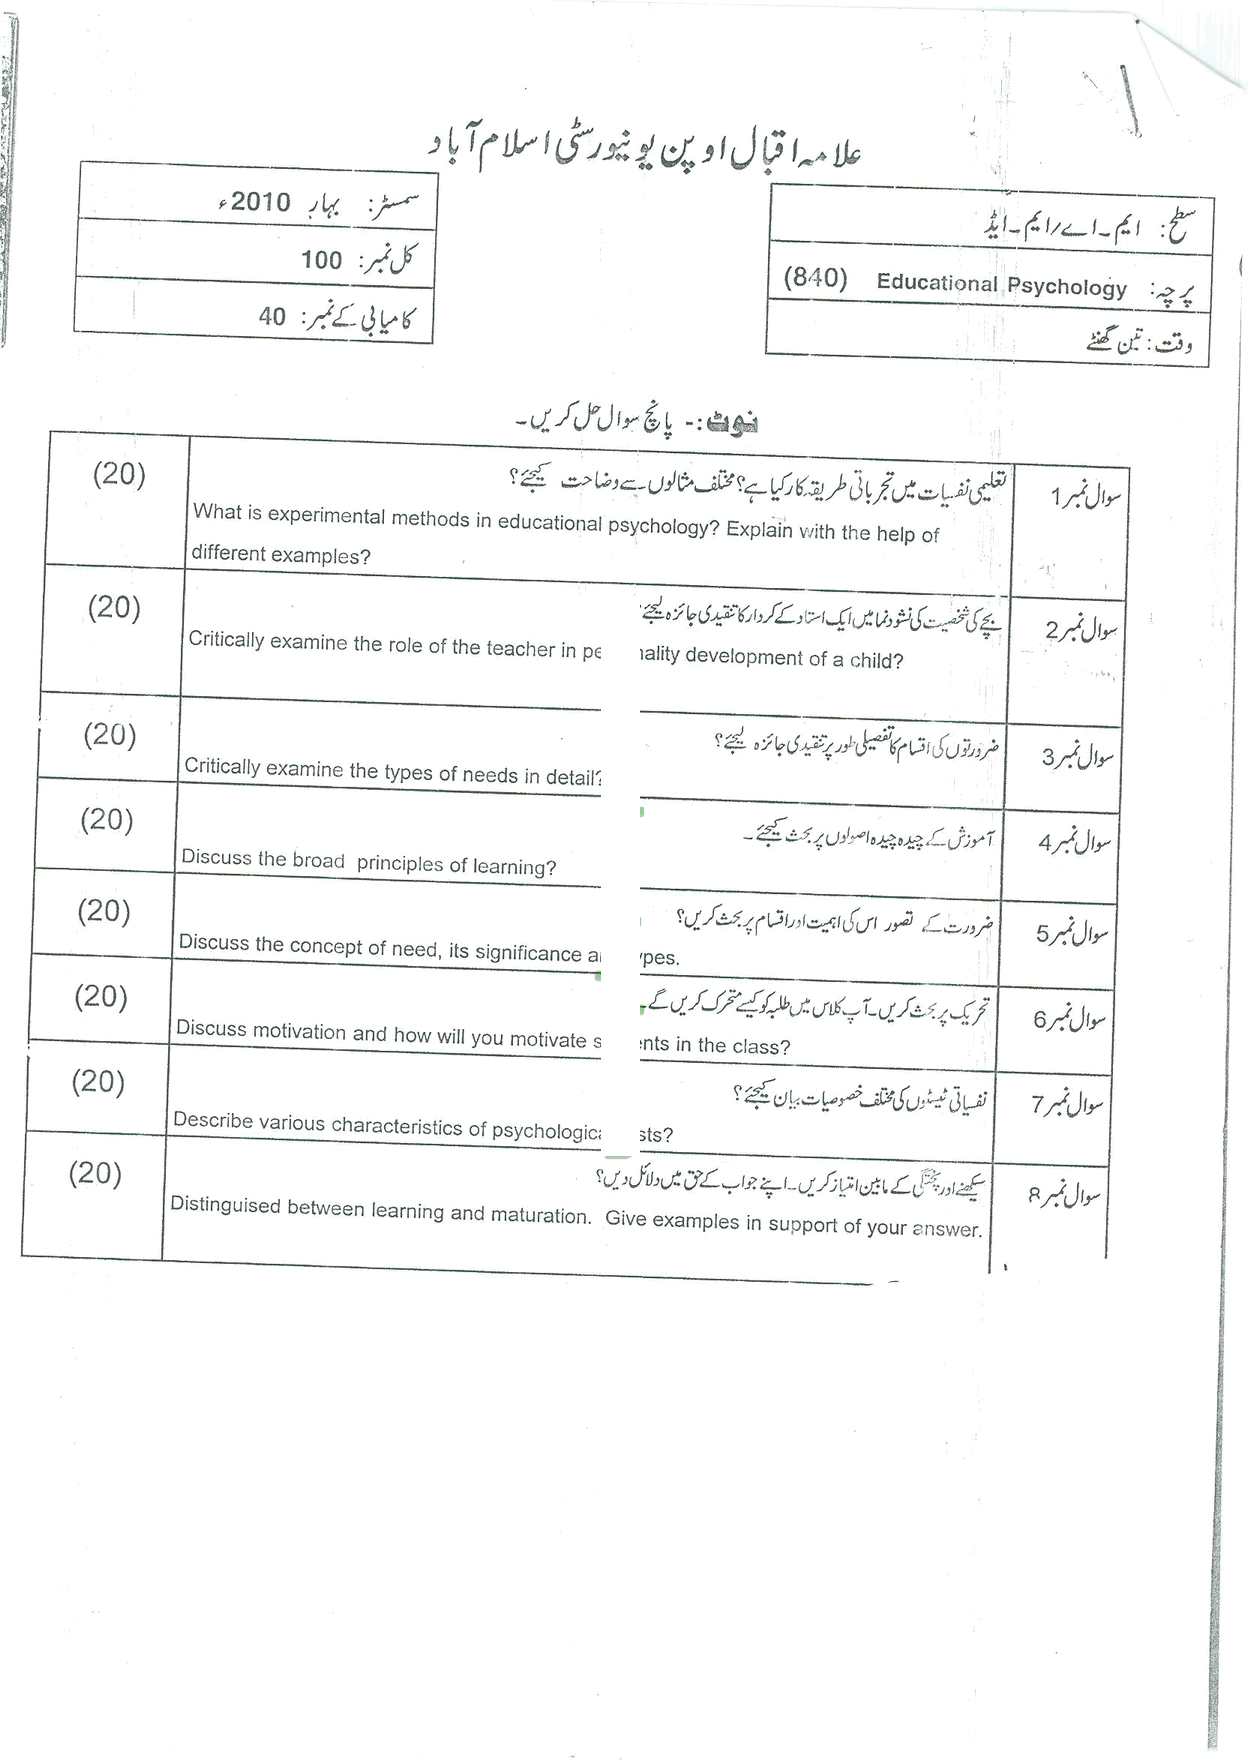 علامہ اقبال اوپن یونیورسٹی اسلام آباد
سطح: ایم۔اے/ایم۔ایڈ
پرچہ: Educational Psychology (840)
وقت: تین گھنٹے
سمسٹر: بہار 2010ء
کل نمبر: 100
کامیابی کے نمبر: 40
نوٹ:- پانچ سوال حل کریں۔
سوال نمبر 1 تعلیمی نفسیات میں تجرباتی طریقہ کار کیا ہے؟ مختلف مثالوں سے وضاحت کیجئے؟ (20)
What is experimental methods in educational psychology? Explain with the help of
different examples?
سوال نمبر 2 بچے کی شخصیت کی نشوونما میں ایک استاد کے کردار کا تنقیدی جائزہ لیجئے (20)
Critically examine the role of the teacher in pe nality development of a child?
سوال نمبر 3 ضرورتوں کی اقسام کا تفصیلی طور پر تنقیدی جائزہ لیجئے؟ (20)
Critically examine the types of needs in detail?
سوال نمبر 4 آموزش کے چیدہ چیدہ اصولوں پر بحث کیجئے۔ (20)
Discuss the broad principles of learning?
سوال نمبر 5 ضرورت کے تصور اس کی اہمیت اور اقسام پر بحث کریں؟ (20)
Discuss the concept of need, its significance a ypes.
سوال نمبر 6 تحریک پر بحث کریں۔ آپ کلاس میں طلبہ کو کیسے متحرک کریں گے۔ (20)
Discuss motivation and how will you motivate s nts in the class?
سوال نمبر 7 نفسیاتی ٹیسٹوں کی مختلف خصوصیات بیان کیجئے؟ (20)
Describe various characteristics of psychologica sts?
سوال نمبر 8 سیکھنے اور پختگی کے مابین امتیاز کریں۔ اپنے جواب کے حق میں دلائل دیں؟ (20)
Distinguised between learning and maturation. Give examples in support of your answer.